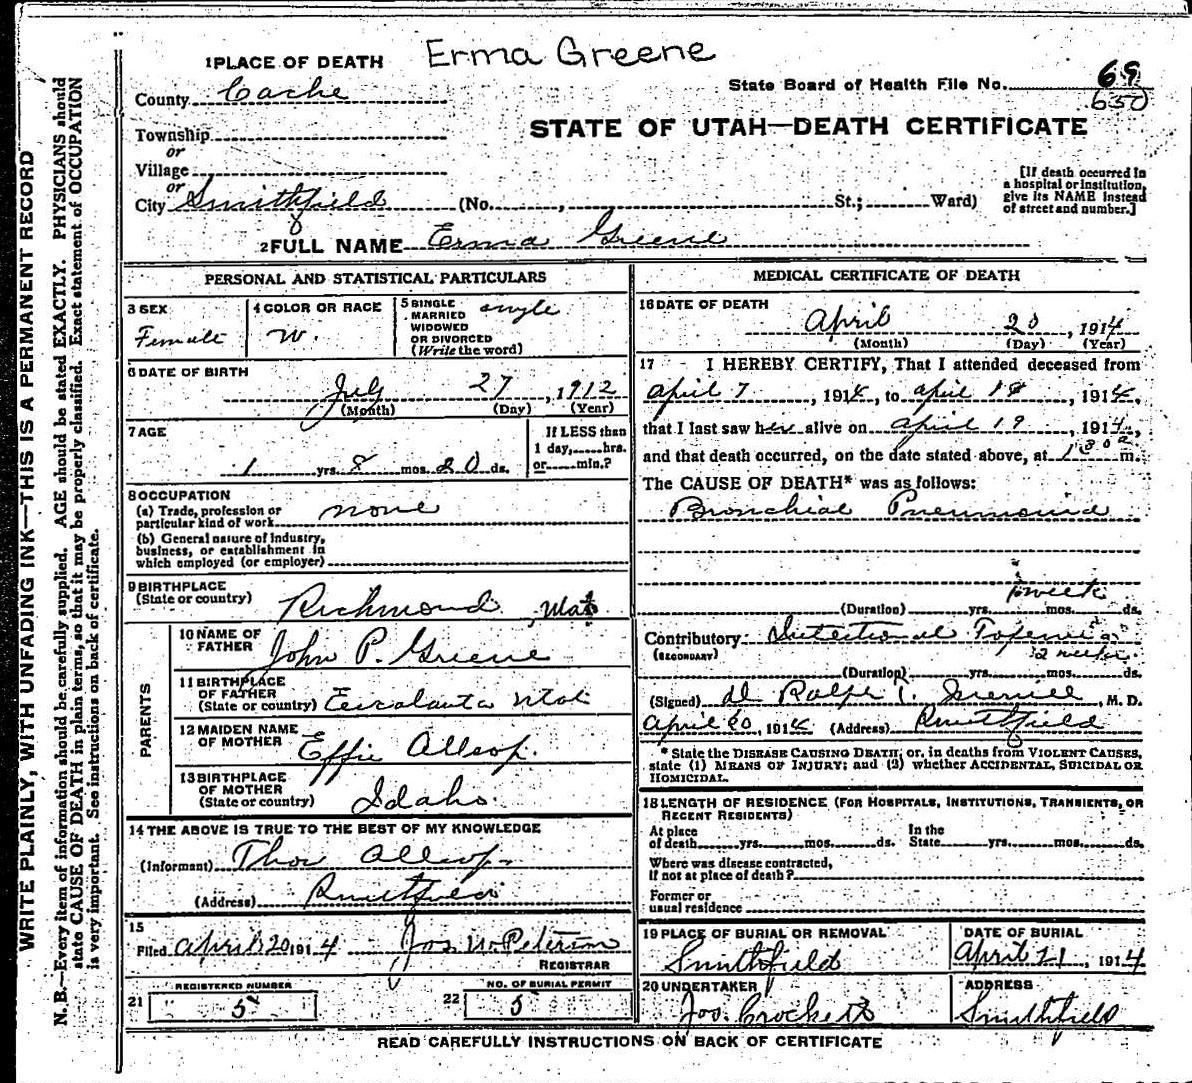 Erma Greene
1 PLACE OF DEATH
State Board of Health File No. 69
650
County Cache
STATE OF UTAH—DEATH CERTIFICATE
Township
or
Village
or
City Smithfield (No. , St.; Ward)
[If death occurred in
a hospital or institution,
give its NAME instead
of street and number.]
2 FULL NAME Erma Greene
PERSONAL AND STATISTICAL PARTICULARS
3 SEX
Female
4 COLOR OR RACE
W.
5 SINGLE
MARRIED
WIDOWED
OR DIVORCED
(Write the word)
single
6 DATE OF BIRTH
July 27, 1912
(Month) (Day) (Year)
7 AGE
1 yrs. 8 mos. 20 ds.
If LESS than
1 day, hrs.
or min.?
8 OCCUPATION
(a) Trade, profession or
particular kind of work none
(b) General nature of industry,
business, or establishment in
which employed (or employer)
9 BIRTHPLACE
(State or country) Richmond,
PARENTS
10 NAME OF
FATHER John P. Greene
11 BIRTHPLACE
OF FATHER
(State or country) Utah
12 MAIDEN NAME
OF MOTHER Effie Allsop.
13 BIRTHPLACE
OF MOTHER
(State or country) Idaho.
14 THE ABOVE IS TRUE TO THE BEST OF MY KNOWLEDGE
(Informant) Thos Allsop
(Address) Smithfield
15
Filed April 20 1914 Jos. W. Peterson
REGISTRAR
REGISTERED NUMBER
21 5
NO. OF BURIAL PERMIT
22 5
MEDICAL CERTIFICATE OF DEATH
16 DATE OF DEATH
April 20, 1914
(Month) (Day) (Year)
17 I HEREBY CERTIFY, That I attended deceased from
April 7, 1914, to April 19, 1914,
that I last saw her alive on April 19, 1914,
and that death occurred, on the date stated above, at 130a m.
The CAUSE OF DEATH* was as follows:
Bronchial Pneumonia
week
(Duration) yrs. mos. ds.
Contributory Intestional
(SECONDARY) 2 weeks.
(Duration) yrs. mos. ds.
(Signed) Ralph T. , M. D.
April 20, 1914 (Address) Smithfield
* State the DISEASE CAUSING DEATH; or, in deaths from VIOLENT CAUSES,
state (1) MEANS OF INJURY; and (2) whether ACCIDENTAL, SUICIDAL OR
HOMICIDAL.
18 LENGTH OF RESIDENCE (FOR HOSPITALS, INSTITUTIONS, TRANSIENTS, OR
RECENT RESIDENTS)
At place
of death yrs. mos. ds.
In the
State yrs. mos. ds.
Where was disease contracted,
if not at place of death?
Former or
usual residence
19 PLACE OF BURIAL OR REMOVAL
Smithfield
DATE OF BURIAL
April 21, 1914
20 UNDERTAKER
Jos. Crocketts
ADDRESS
Smithfield
READ CAREFULLY INSTRUCTIONS ON BACK OF CERTIFICATE
WRITE PLAINLY, WITH UNFADING INK—THIS IS A PERMANENT RECORD
N. B.—Every item of information should be carefully supplied. AGE should be stated EXACTLY. PHYSICIANS should
state CAUSE OF DEATH in plain terms, so that it may be properly classified. Exact statement of OCCUPATION
is very important. See instructions on back of certificate.